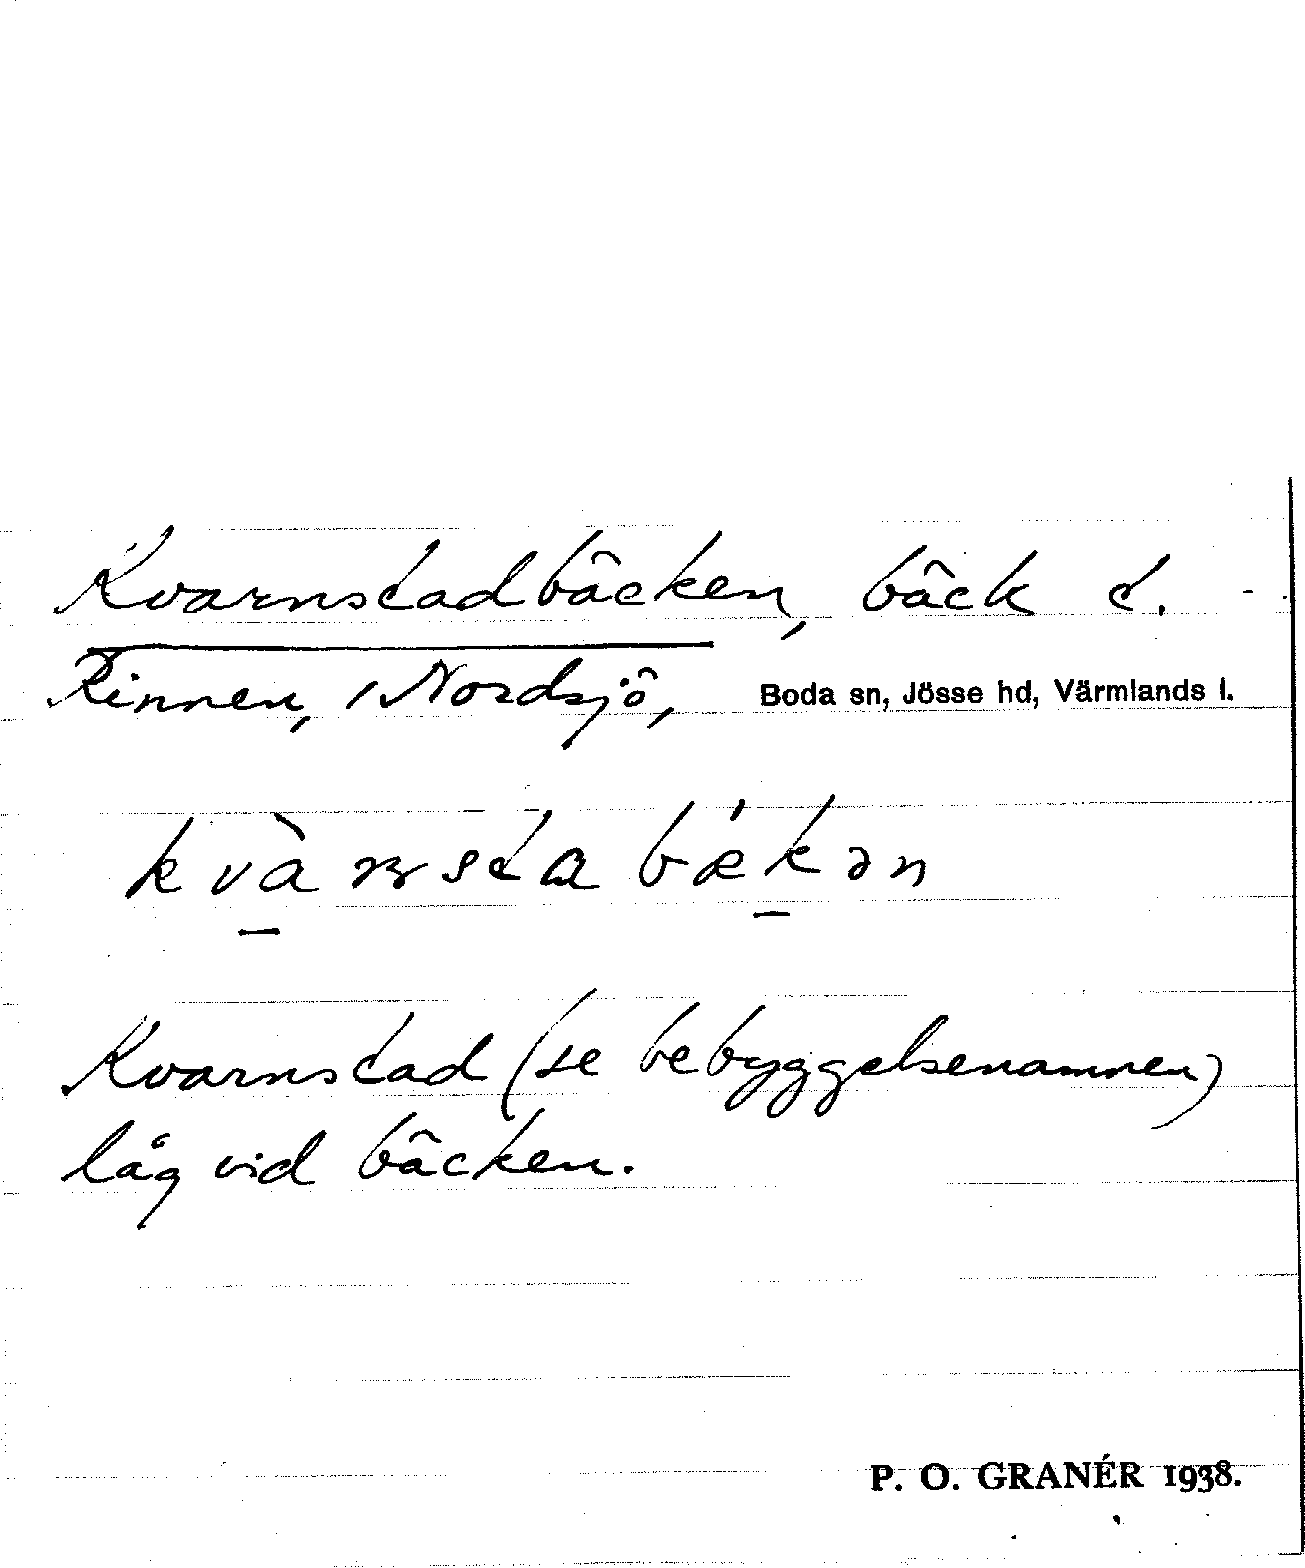 Kvarnstadbäcken, bäck t.
Rinnen, Nordsjö, Boda sn, Jösse hd, Värmlands l.
Kvarnstad (se bebyggelsenamnen)
låg vid bäcken.
P. O. GRANÉR 1938.